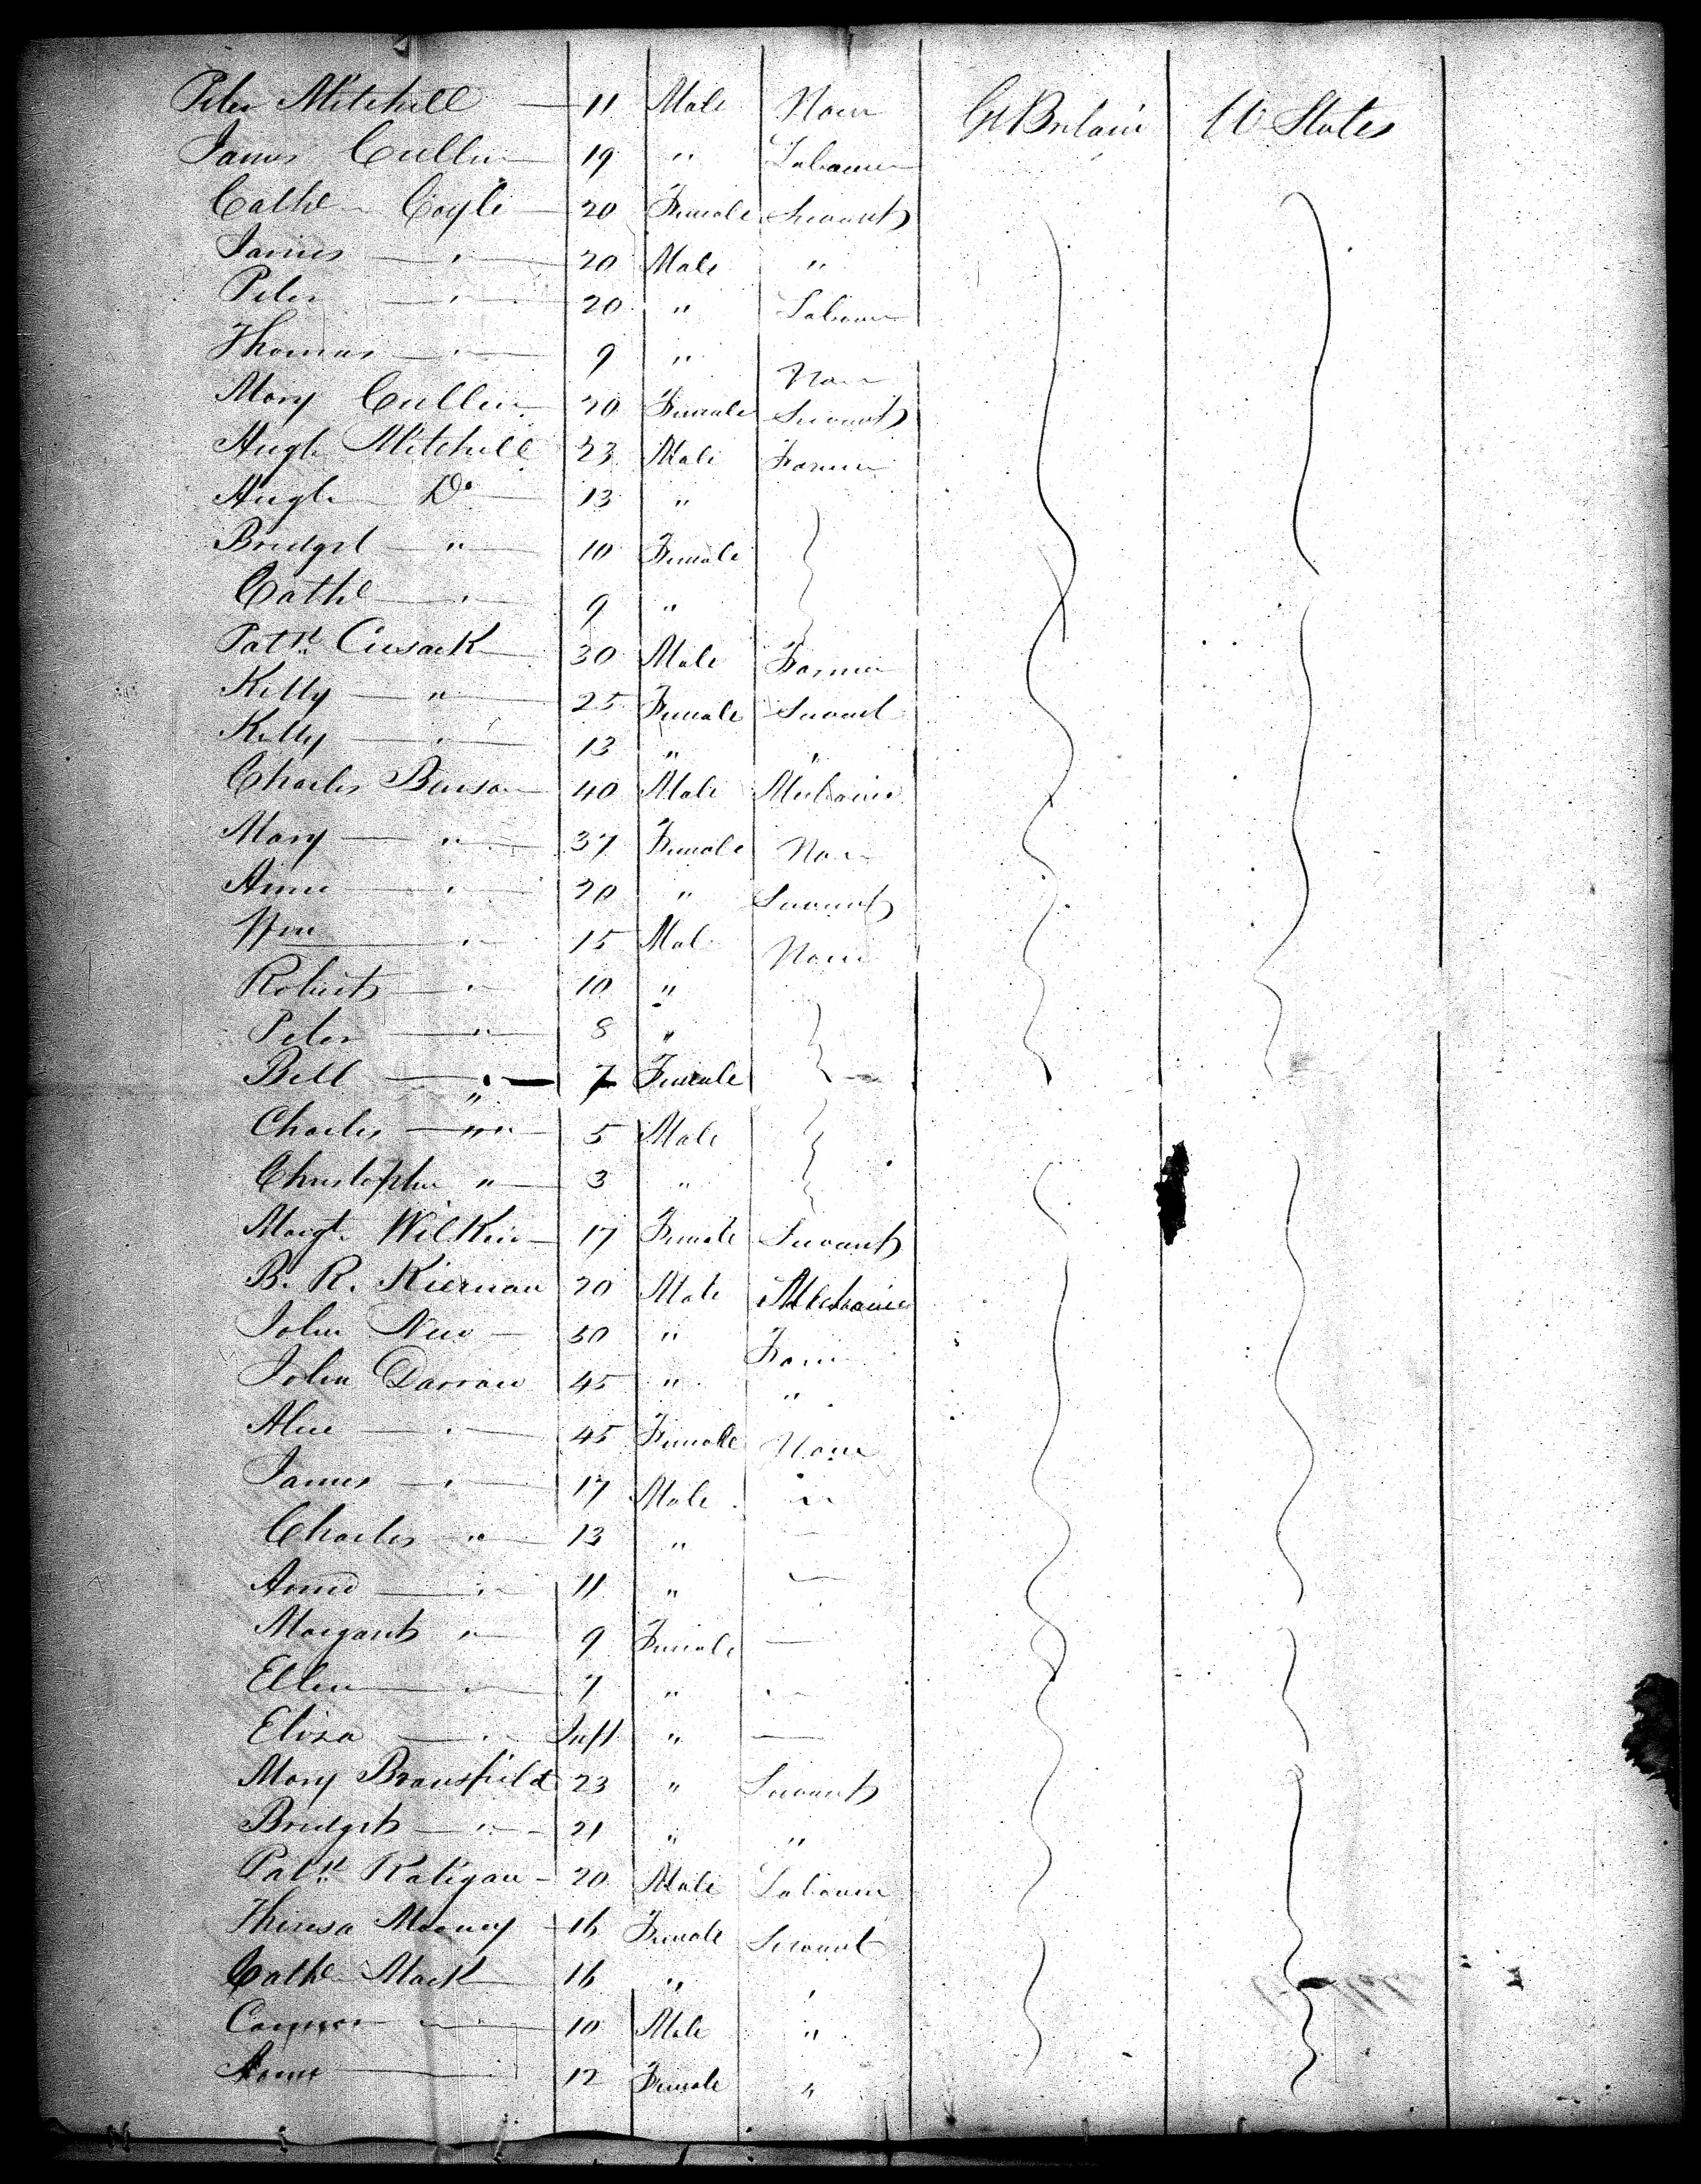 Peter Mitchell — 11 Male None Gt Britain U States
James Cullen — 19 " Labourer
Cathe Coyle — 20 Female Servant
James — " — 20 Male "
Peter — " — 20 " Labourer
Thomas — " — 9 " None
Mary Cullen — 20 Female Servant
Hugh Mitchell 23 Male Farmer
Hugh — Do — 13 "
Bridget — " — 10 Female
Cathe — " — 9 "
Patk Cusack — 30 Male Farmer
Kitty — " — 25 Female Servant
Kitty — " — 13 " "
Charles Benson — 40 Male Mechanic
Mary — " — 37 Female None
Anne — " — 20 " Servant
Wm — " — 15 Male None
Robert — " — 10 "
Peter — " — 8 "
Bell — " — 7 Female
Charles — " — 5 Male
Christopher " — 3 "
Margt Wilkin — 17 Female Servant
B. R. Kiernan 20 Male Mechanic
John New — 50 " Farm
John Darrow 45 " "
Alice — " — 45 Female None
James — " — 17 Male "
Charles — " — 13 " —
Anne — " — 11 " —
Margaret " — 9 Female —
Ellen — " — 7 " "
Eliza — " — Inft " —
Mary Bransfield 23 " Servant
Bridget — " — 21 " "
Patk Ratigan — 20 Male Labourer
Theresa Mooney — 16 Female Servant
Cathe Mack — 16 " "
— 10 Male "
Anne — 12 Female "